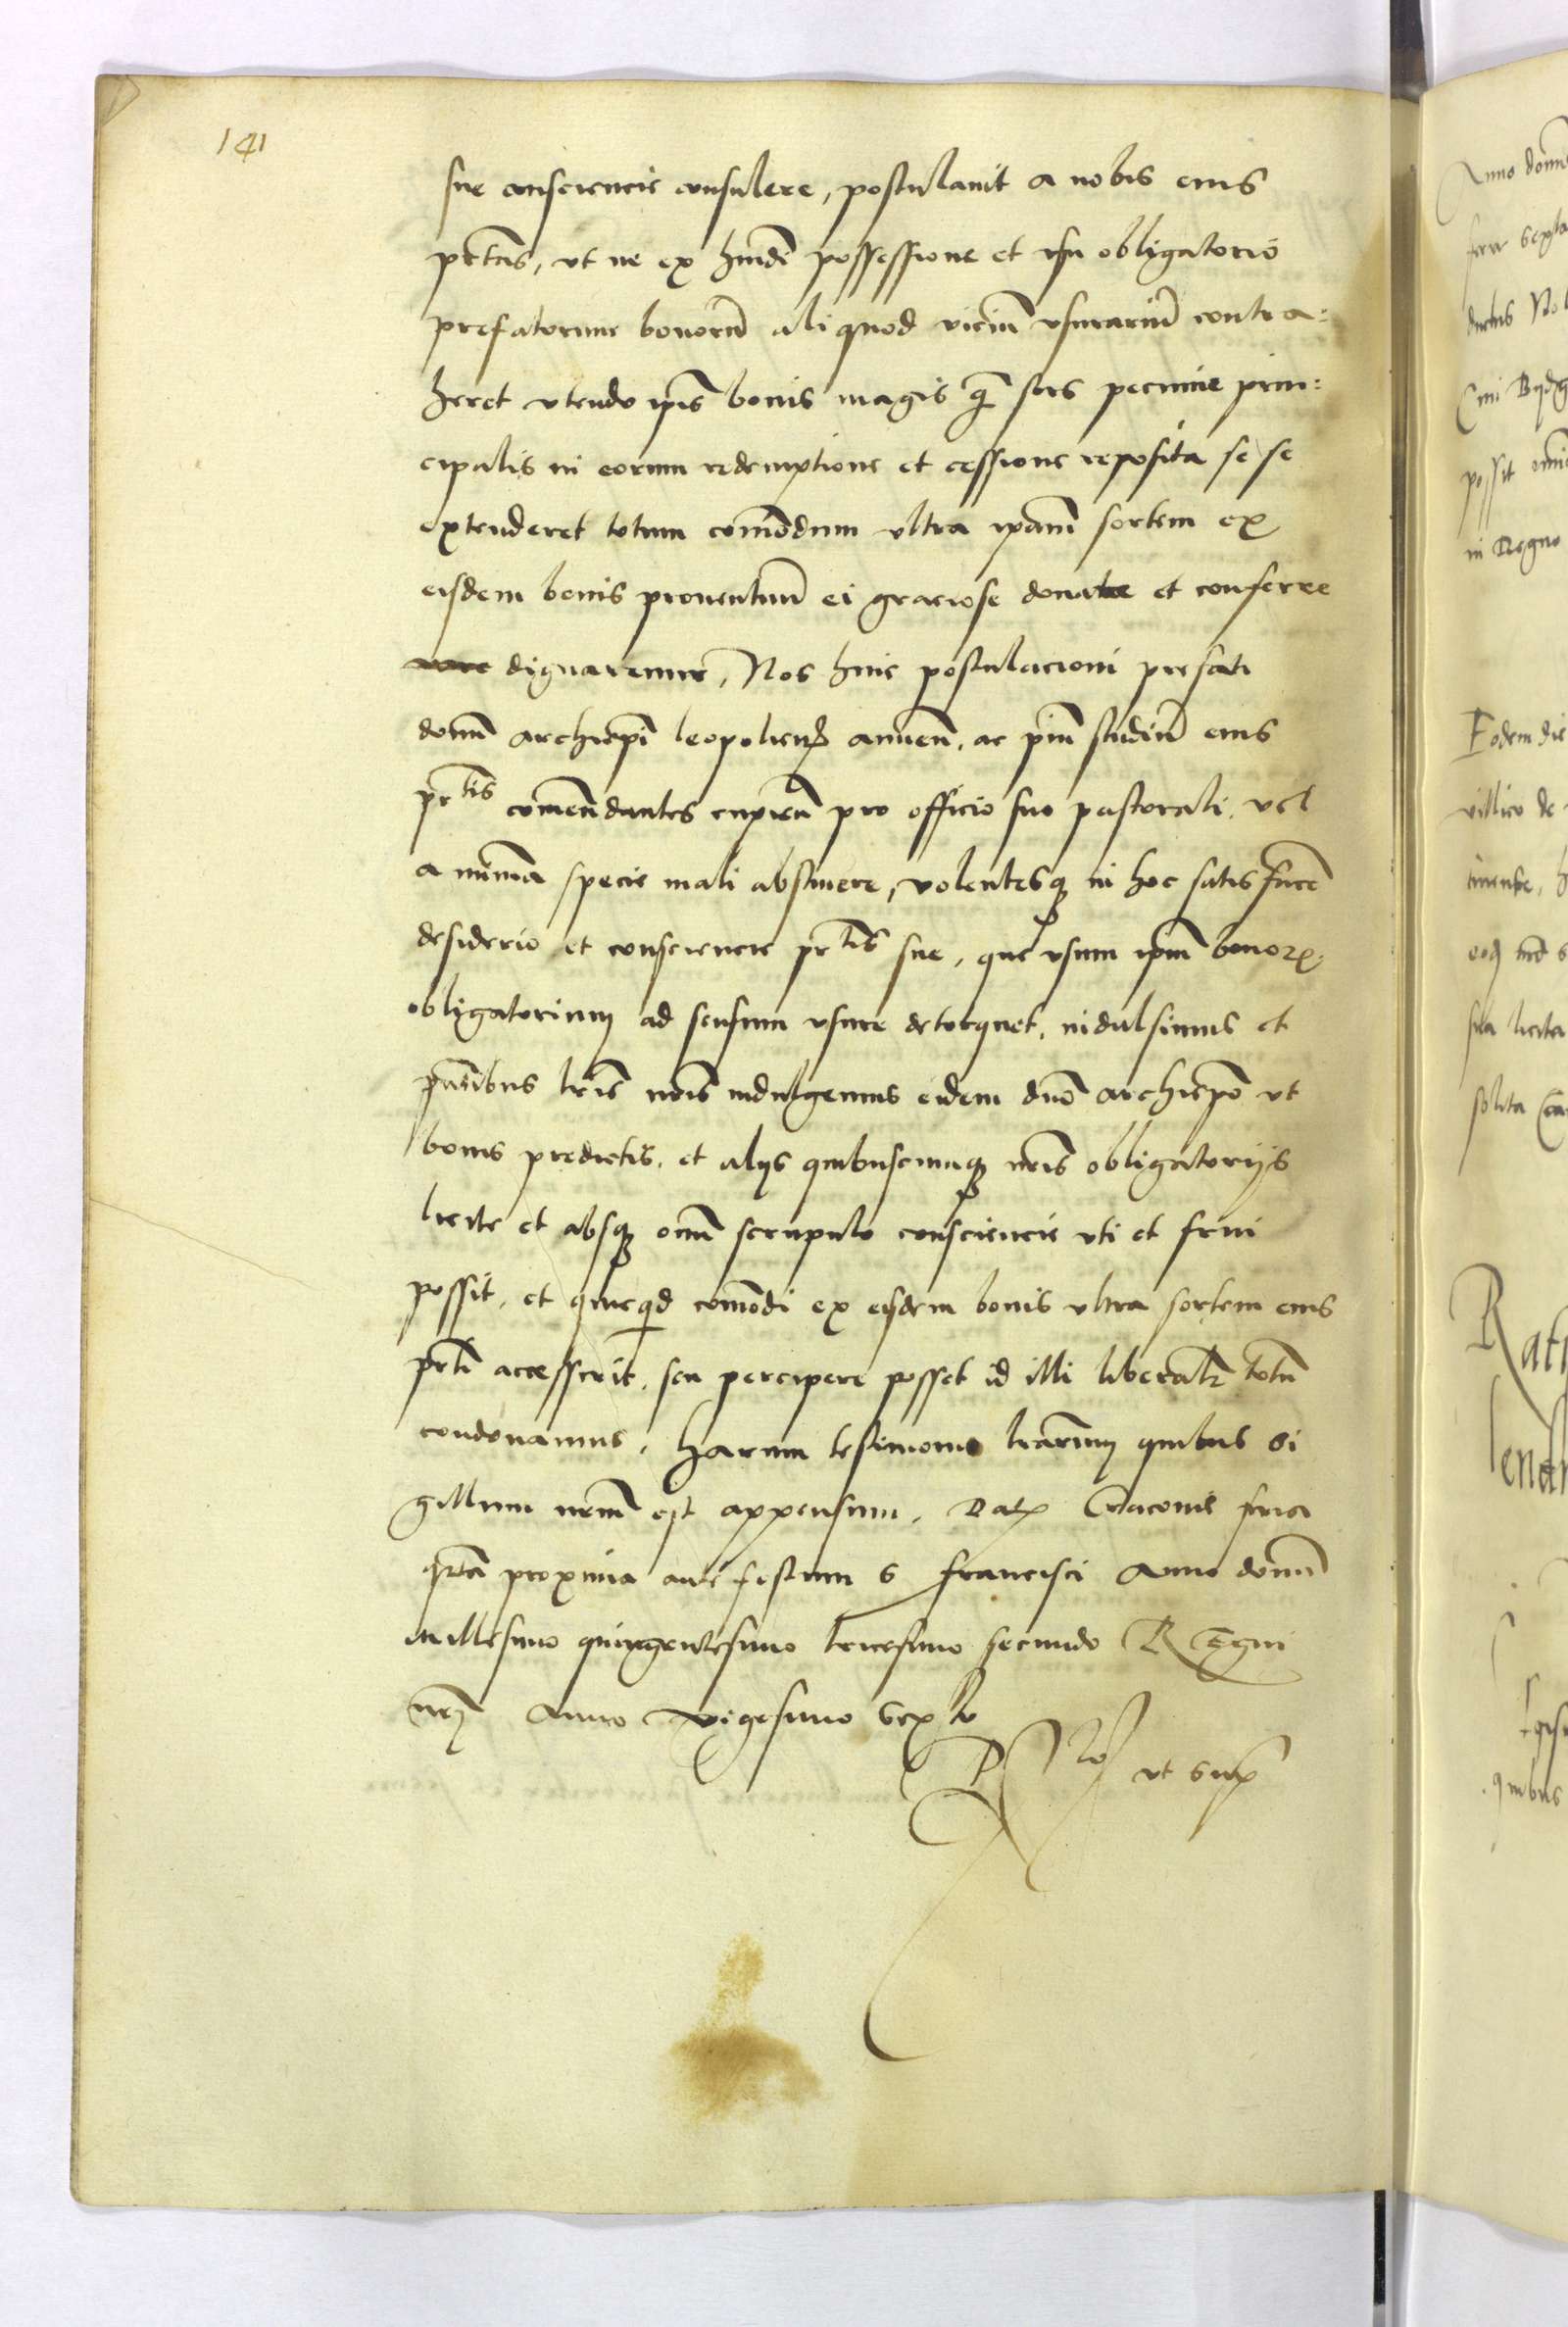 141
sue consciencie consulere, postulavit a nobis eius
ptas, ut ne ex huiusdi possessione et usu obligatorio
prefatorum bonorum aliquod vicium usurarium contra:
heret utendo ipis bonis magis q sors pecunie prin:
cipalis in eorum redemptione et cessione reposita se se
extenderet totum comodum ultra ipam sortem ex
eisdem bonis proventurum ei graciose donare et conferre
dignaremur, Nos huic postulacioni prefati
domi archiepi leopolien annuen. ac pium studium eius
prtis comendantes cupien pro officio suo pastorali. vel
a minima specie mali abstinere, volentesq in hoc satisfacere
desiderio et consciencie prtis sue, que usum ipm bonor
obligatorium ad sensum usure detorquet. indulsimus et
pntibus lris nris indulgemus eidem dno archiepo ut
bonis predictis. et alijs quibuscumq nris obligatorijs
licite et absq omi scrupulo consciencie uti et frui
possit. et quicqd comodi ex eisdem bonis ultra sortem eius
prti accesserit. seu percipere posset id illi liberalr totum
condonamus. Harum testimonio lrarum quibus si
gillum nrum est appensum. Dat Cracovie feria
qrta proxima ante festum S Francisci Anno domi
millesimo quingentesimo tricesimo secundo Regni
nri Anno vigesimo Sexto
ut Sup
Anno domi
feria sexta
possit
in Regno
Eodem die
villico de
solita
quibus